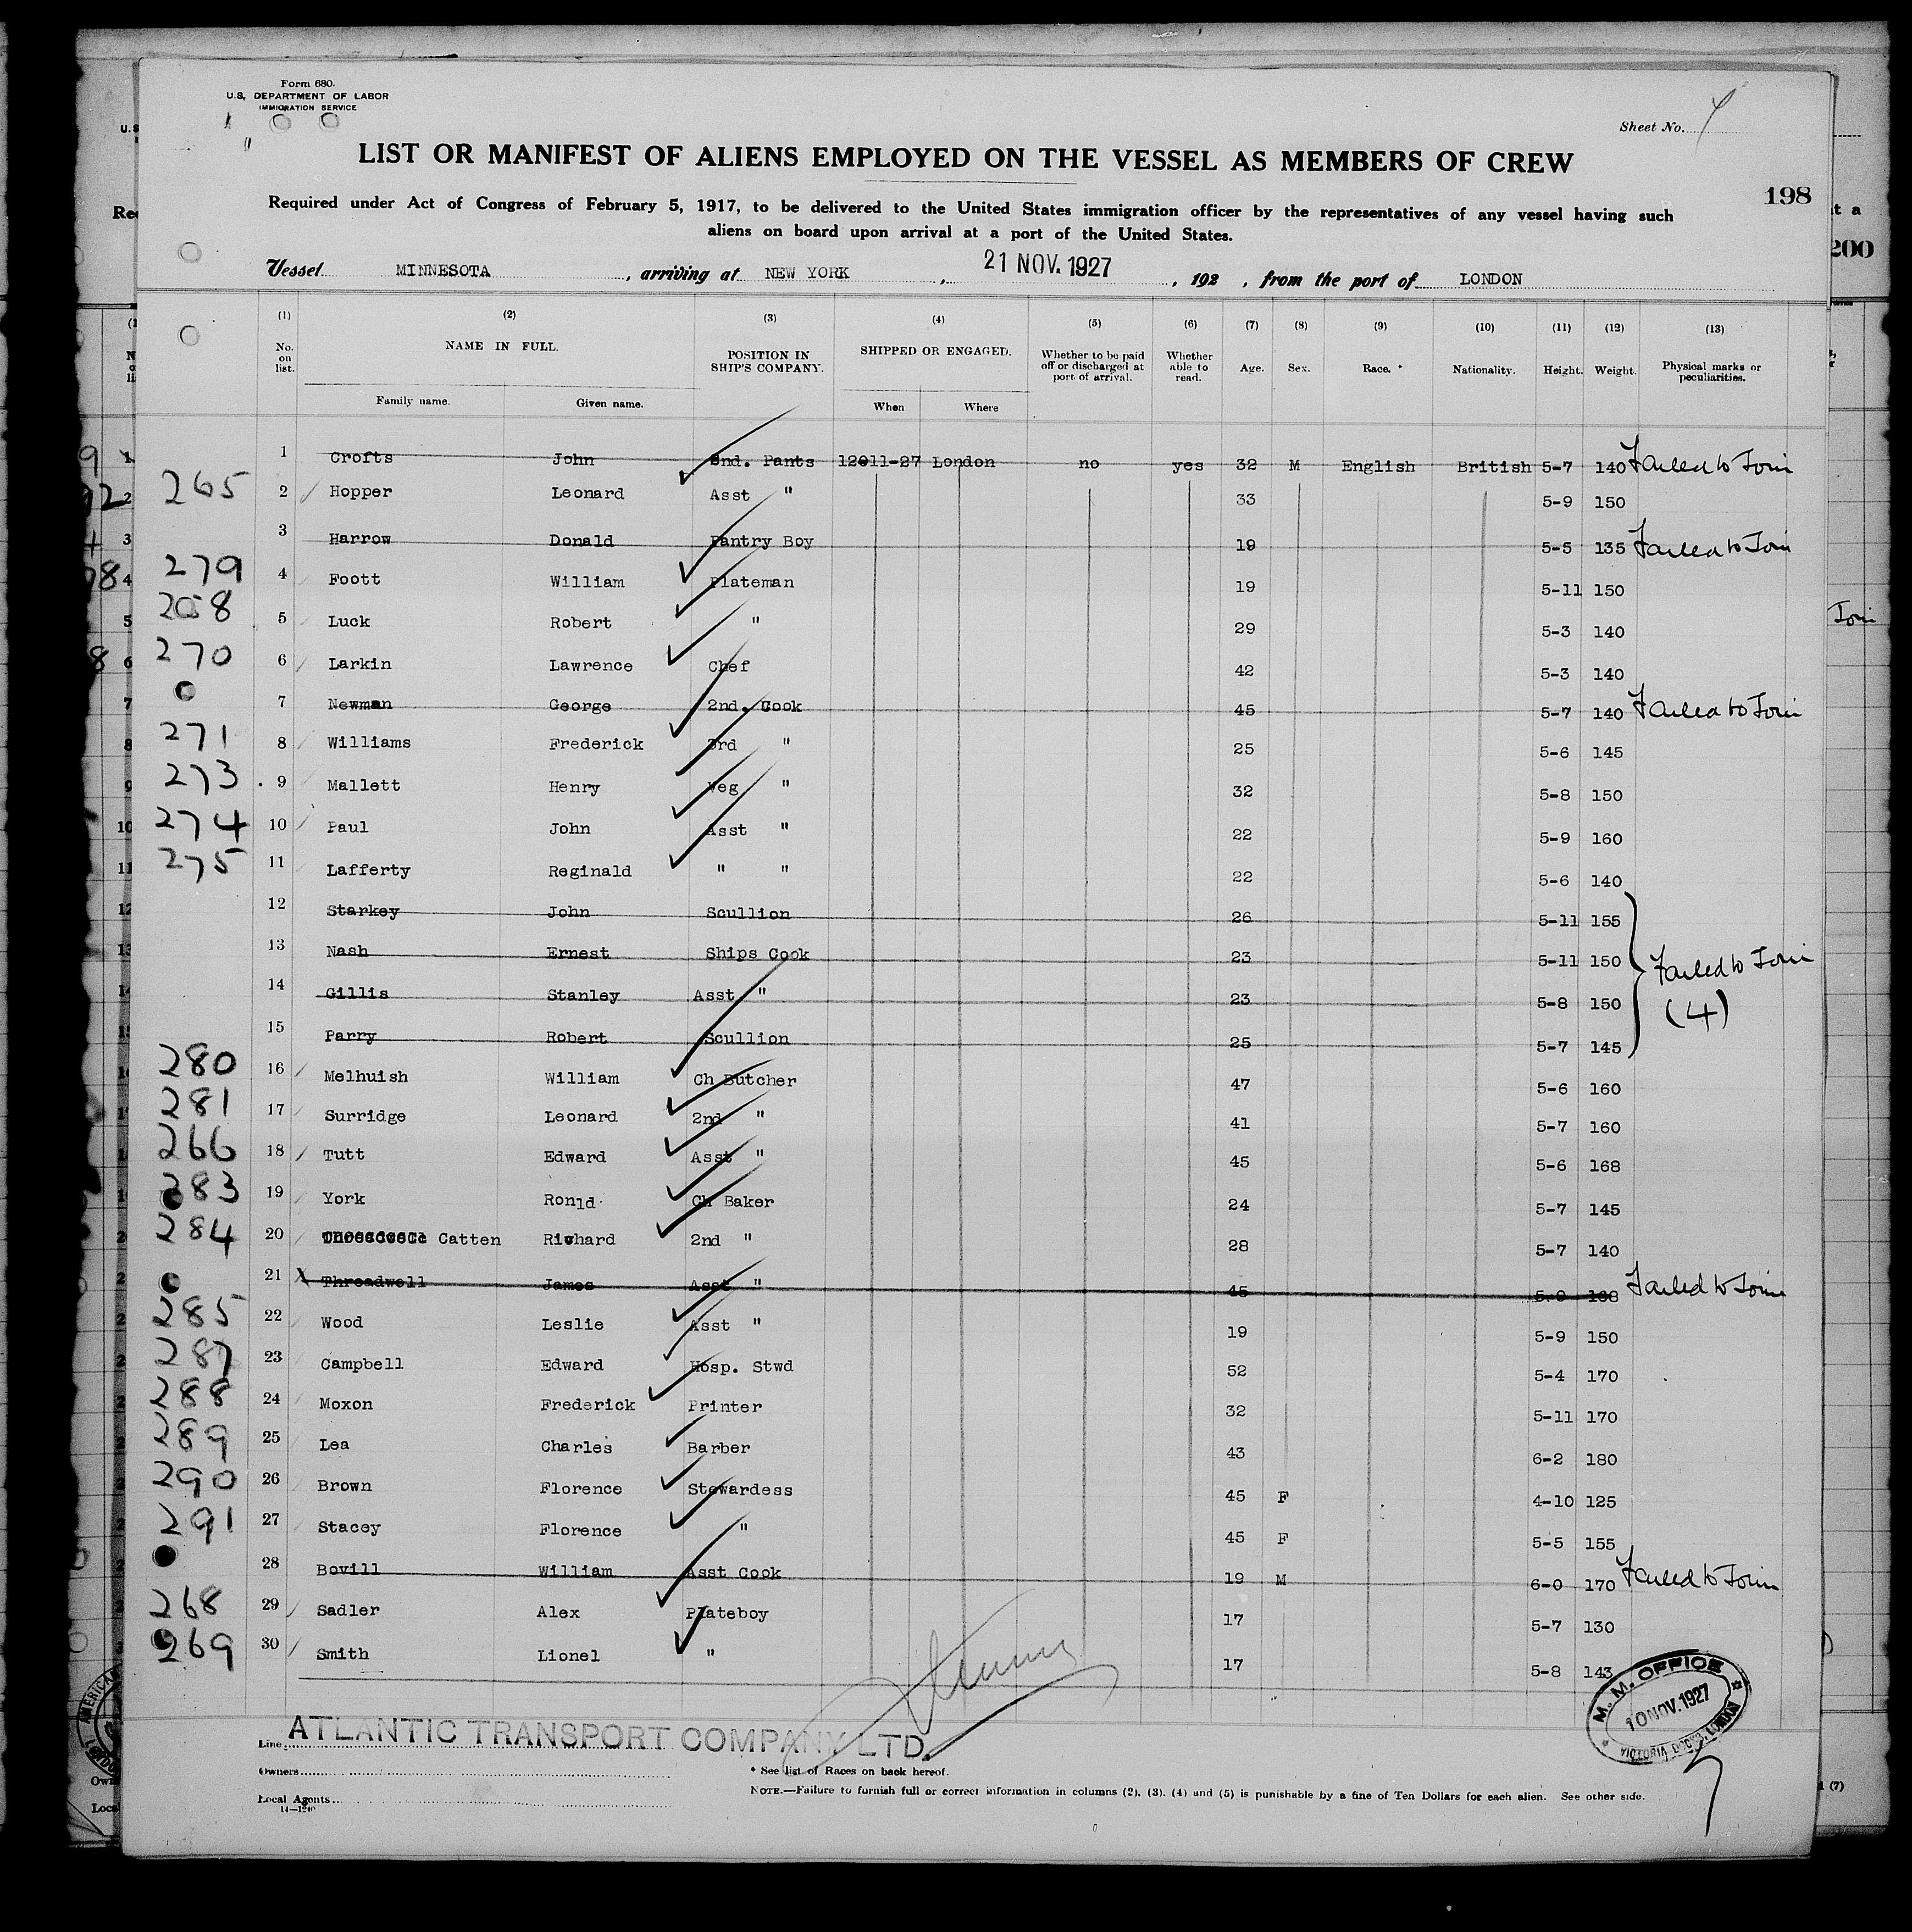 Form 680.
U.S. DEPARTMENT OF LABOR
IMMIGRATION SERVICE
Sheet No.
LIST OR MANIFEST OF ALIENS EMPLOYED ON THE VESSEL AS MEMBERS OF CREW
198
Required under Act of Congress of February 5, 1917, to be delivered to the United States immigration officer by the representatives of any vessel having such
aliens on board upon arrival at a port of the United States.
200
Vessel MINNESOTA, arriving at NEW YORK, 21 NOV. 1927, 192 , from the port of LONDON
(1) (2) (3) (4) (5) (6) (7) (8) (9) (10) (11) (12) (13)
No. on list. NAME IN FULL. POSITION IN SHIP'S COMPANY. SHIPPED OR ENGAGED. Whether to be paid off or discharged at port of arrival. Whether able to read. Age. Sex. Race. * Nationality. Height. Weight. Physical marks or peculiarities.
Family name. Given name. When Where
1 Crofts John 2nd. Pants 12-11-27 London no yes 32 M English British 5-7 140 Failed to Join
265 2 Hopper Leonard Asst " 33 5-9 150
3 Harrow Donald Pantry Boy 19 5-5 135 Failed to Join
279 4 Foott William Plateman 19 5-11 150
258 5 Luck Robert " 29 5-3 140
270 6 Larkin Lawrence Chef 42 5-3 140
7 Newman George 2nd. Cook 45 5-7 140 Failed to Join
271 8 Williams Frederick 3rd " 25 5-6 145
273 9 Mallett Henry Veg " 32 5-8 150
274 10 Paul John Asst " 22 5-9 160
275 11 Lafferty Reginald " " 22 5-6 140
12 Starkey John Scullion 26 5-11 155
13 Nash Ernest Ships Cook 23 5-11 150 Failed to Join
14 Gillis Stanley Asst " 23 5-8 150 (4)
15 Parry Robert Scullion 25 5-7 145
280 16 Melhuish William Ch Butcher 47 5-6 160
281 17 Surridge Leonard 2nd " 41 5-7 160
266 18 Tutt Edward Asst " 45 5-6 168
283 19 York Ronld Ch Baker 24 5-7 145
284 20 Catten Richard 2nd " 28 5-7 140
21 Threadwell James Asst " 45 Failed to Join
285 22 Wood Leslie Asst " 19 5-9 150
287 23 Campbell Edward Hosp. Stwd 52 5-4 170
288 24 Moxon Frederick Printer 32 5-11 170
289 25 Lea Charles Barber 43 6-2 180
290 26 Brown Florence Stewardess 45 F 4-10 125
291 27 Stacey Florence " 45 F 5-5 155
28 Bovill William Asst Cook 19 M 6-0 170 Failed to Join
268 29 Sadler Alex Plateboy 17 5-7 130
269 30 Smith Lionel " 17 5-8 143
M. M. OFFICE
10 NOV. 1927
VICTORIA DOCKS, LONDON
Line ATLANTIC TRANSPORT COMPANY LTD.
Owners
* See list of Races on back hereof.
Local Agents
NOTE.—Failure to furnish full or correct information in columns (2), (3), (4) and (5) is punishable by a fine of Ten Dollars for each alien. See other side.
14—1240